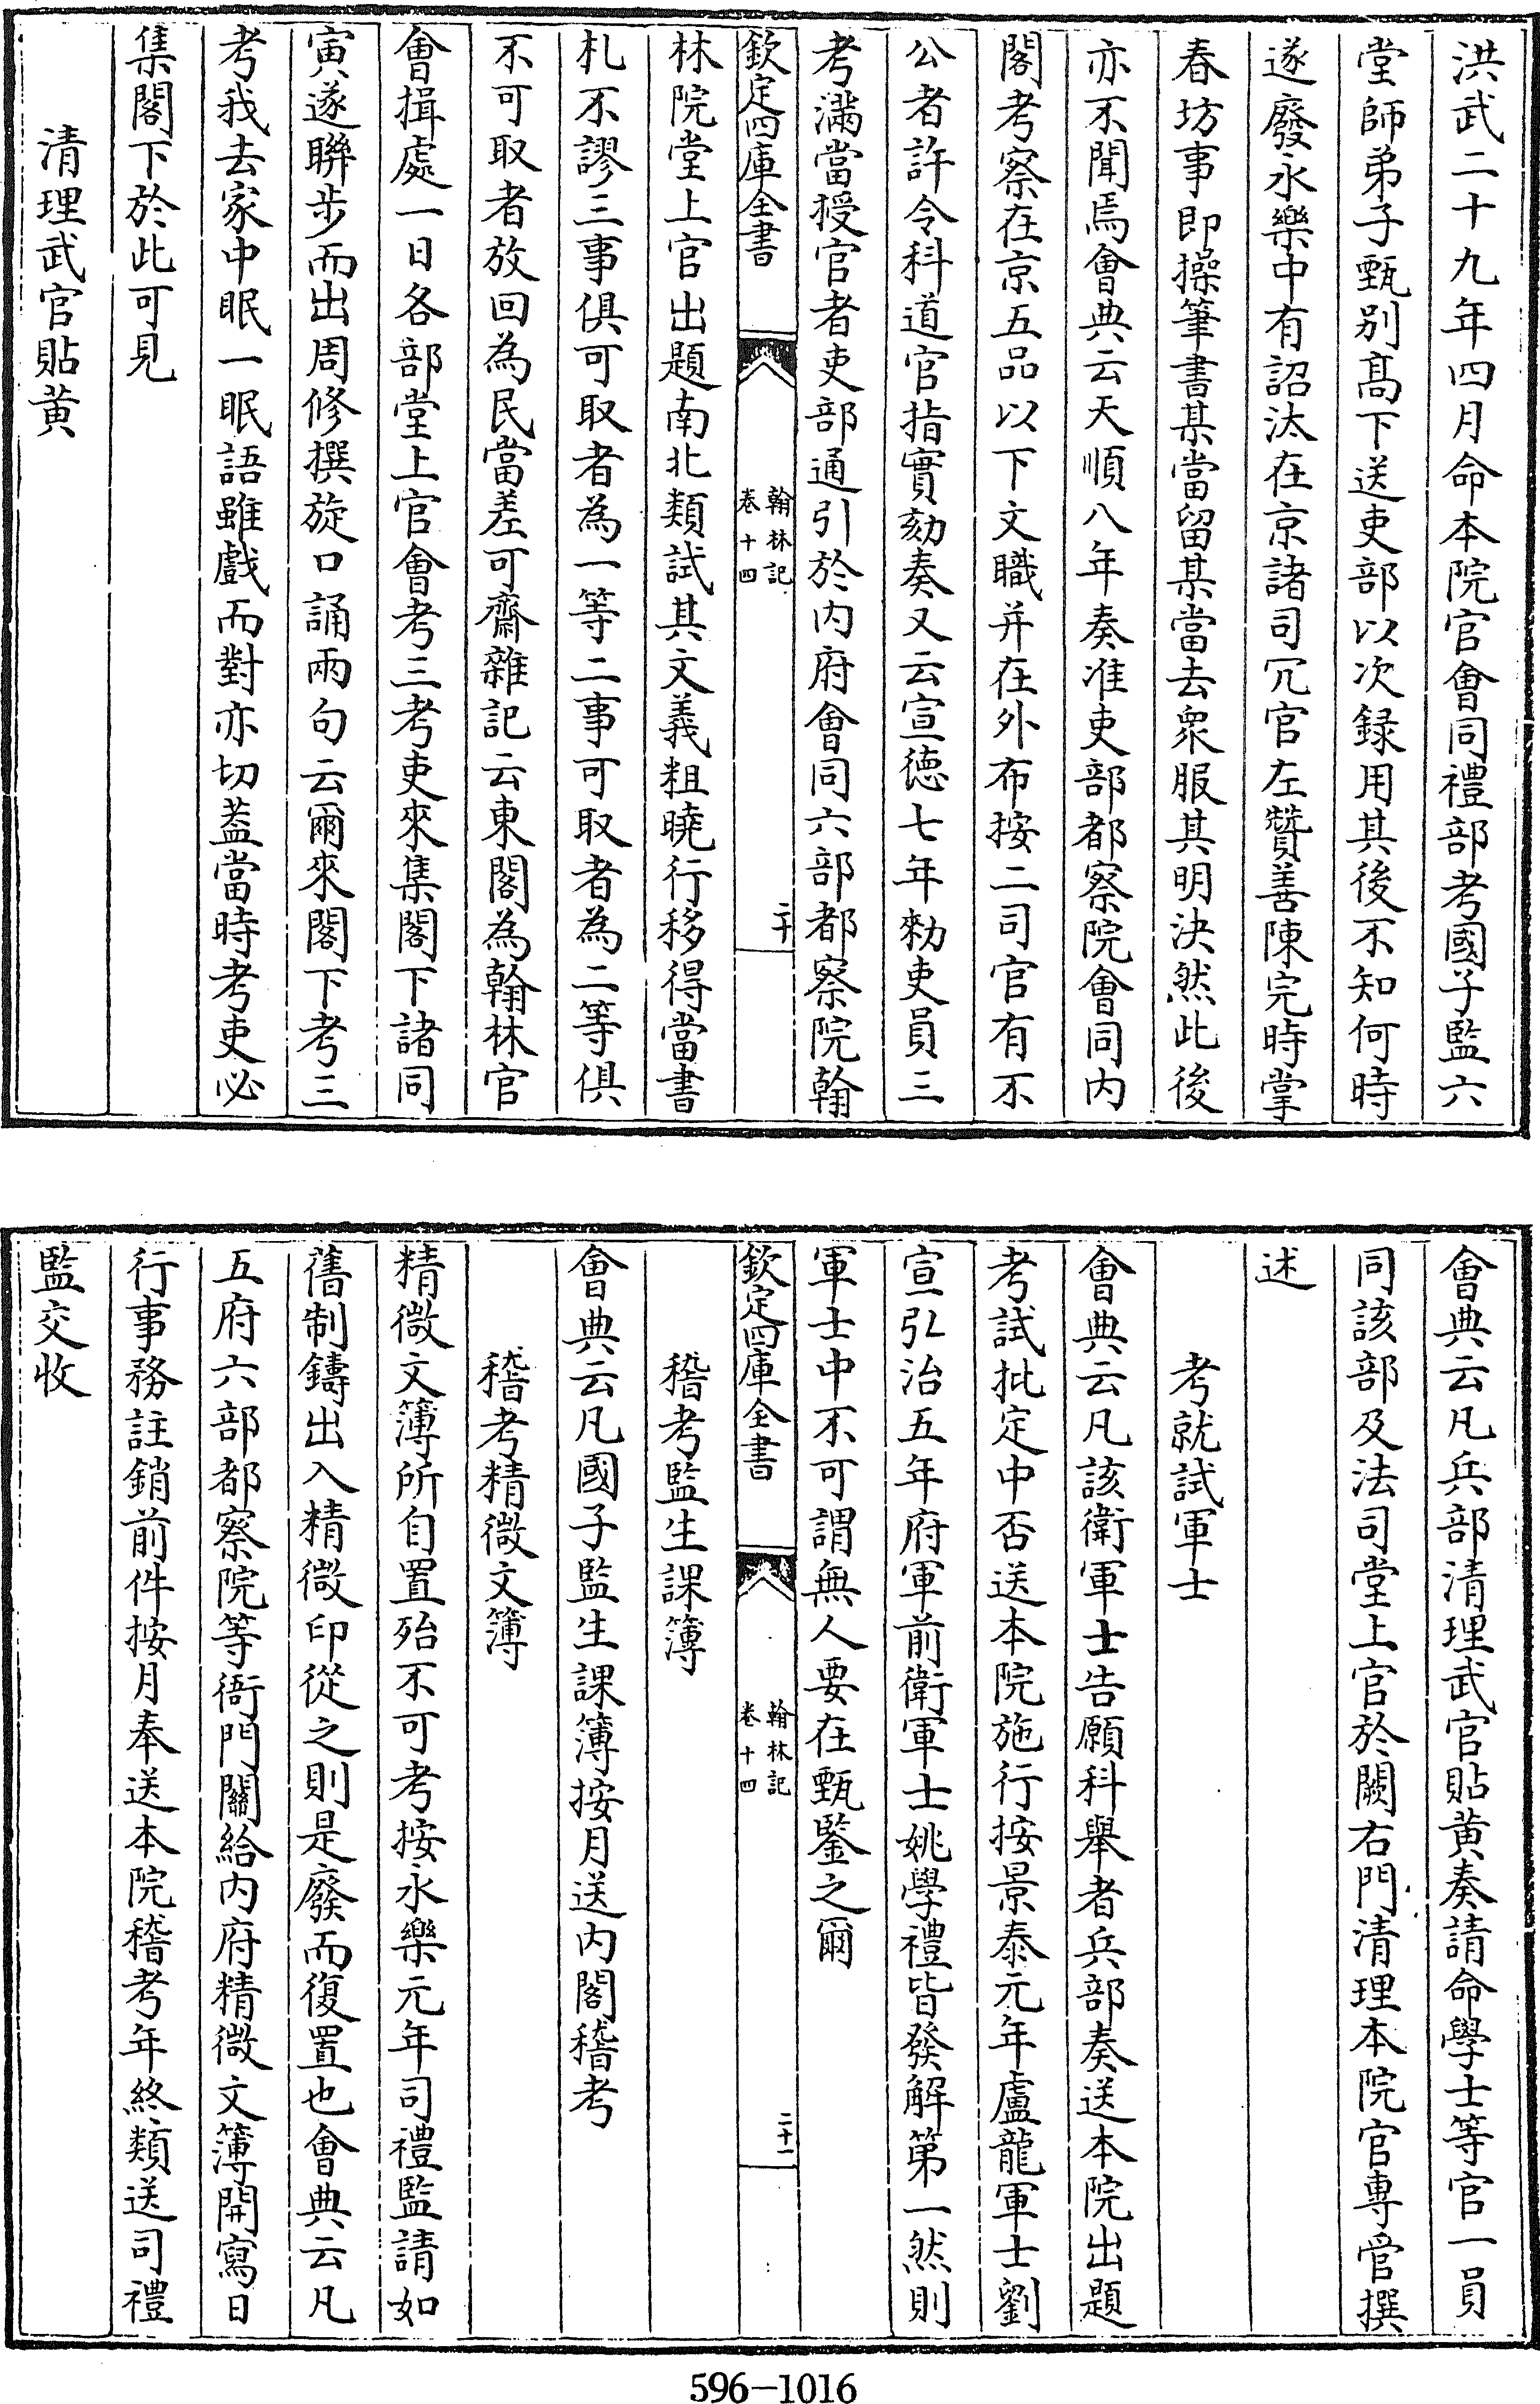 洪武二十九年四月命本院官會同禮部考國子監六
堂師弟子甄别髙下送吏部以次録用其後不知何時
遂廢永樂中有詔汰在京諸司冗官左贊善陳完時掌
春坊事即操筆書某當留某當去衆服其明決然此後
亦不聞焉會典云天順八年奏准吏部都察院會同内
閣考察在京五品以下文職并在外布按二司官有不
公者許令科道官指實劾奏又云宣徳七年勑吏員三
考滿當授官者吏部通引於内府會同六部都察院翰
欽定四庫全書
翰林記
卷十四
二十
林院堂上官出題南北類試其文義粗曉行移得當書
札不謬三事俱可取者為一等二事可取者為二等俱
不可取者放回為民當差可齋雜記云東閣為翰林官
會揖處一日各部堂上官會考三考吏來集閣下諸同
寅遂聯步而出周修撰旋口誦兩句云爾來閣下考三
考我去家中眠一眠語雖戲而對亦切葢當時考吏必
集閣下於此可見
清理武官貼黄
會典云凡兵部清理武官貼黄奏請命學士等官一員
同該部及法司堂上官於闕右門清理本院官專管撰
述
考就試軍士
會典云凡該衛軍士告願科舉者兵部奏送本院出題
考試批定中否送本院施行按景泰元年盧龍軍士劉
宣弘治五年府軍前衛軍士姚學禮皆發解第一然則
軍士中不可謂無人要在甄鑒之爾
欽定四庫全書
翰林記
卷十四
二十一
稽考監生課簿
會典云凡國子監生課簿按月送内閣稽考
稽考精微文簿
精微文簿所自置殆不可考按永樂元年司禮監請如
舊制鑄出入精微印從之則是廢而復置也會典云凡
五府六部都察院等衙門關給内府精微文簿開寫日
行事務註銷前件按月奉送本院稽考年終類送司禮
監交收
596-1016